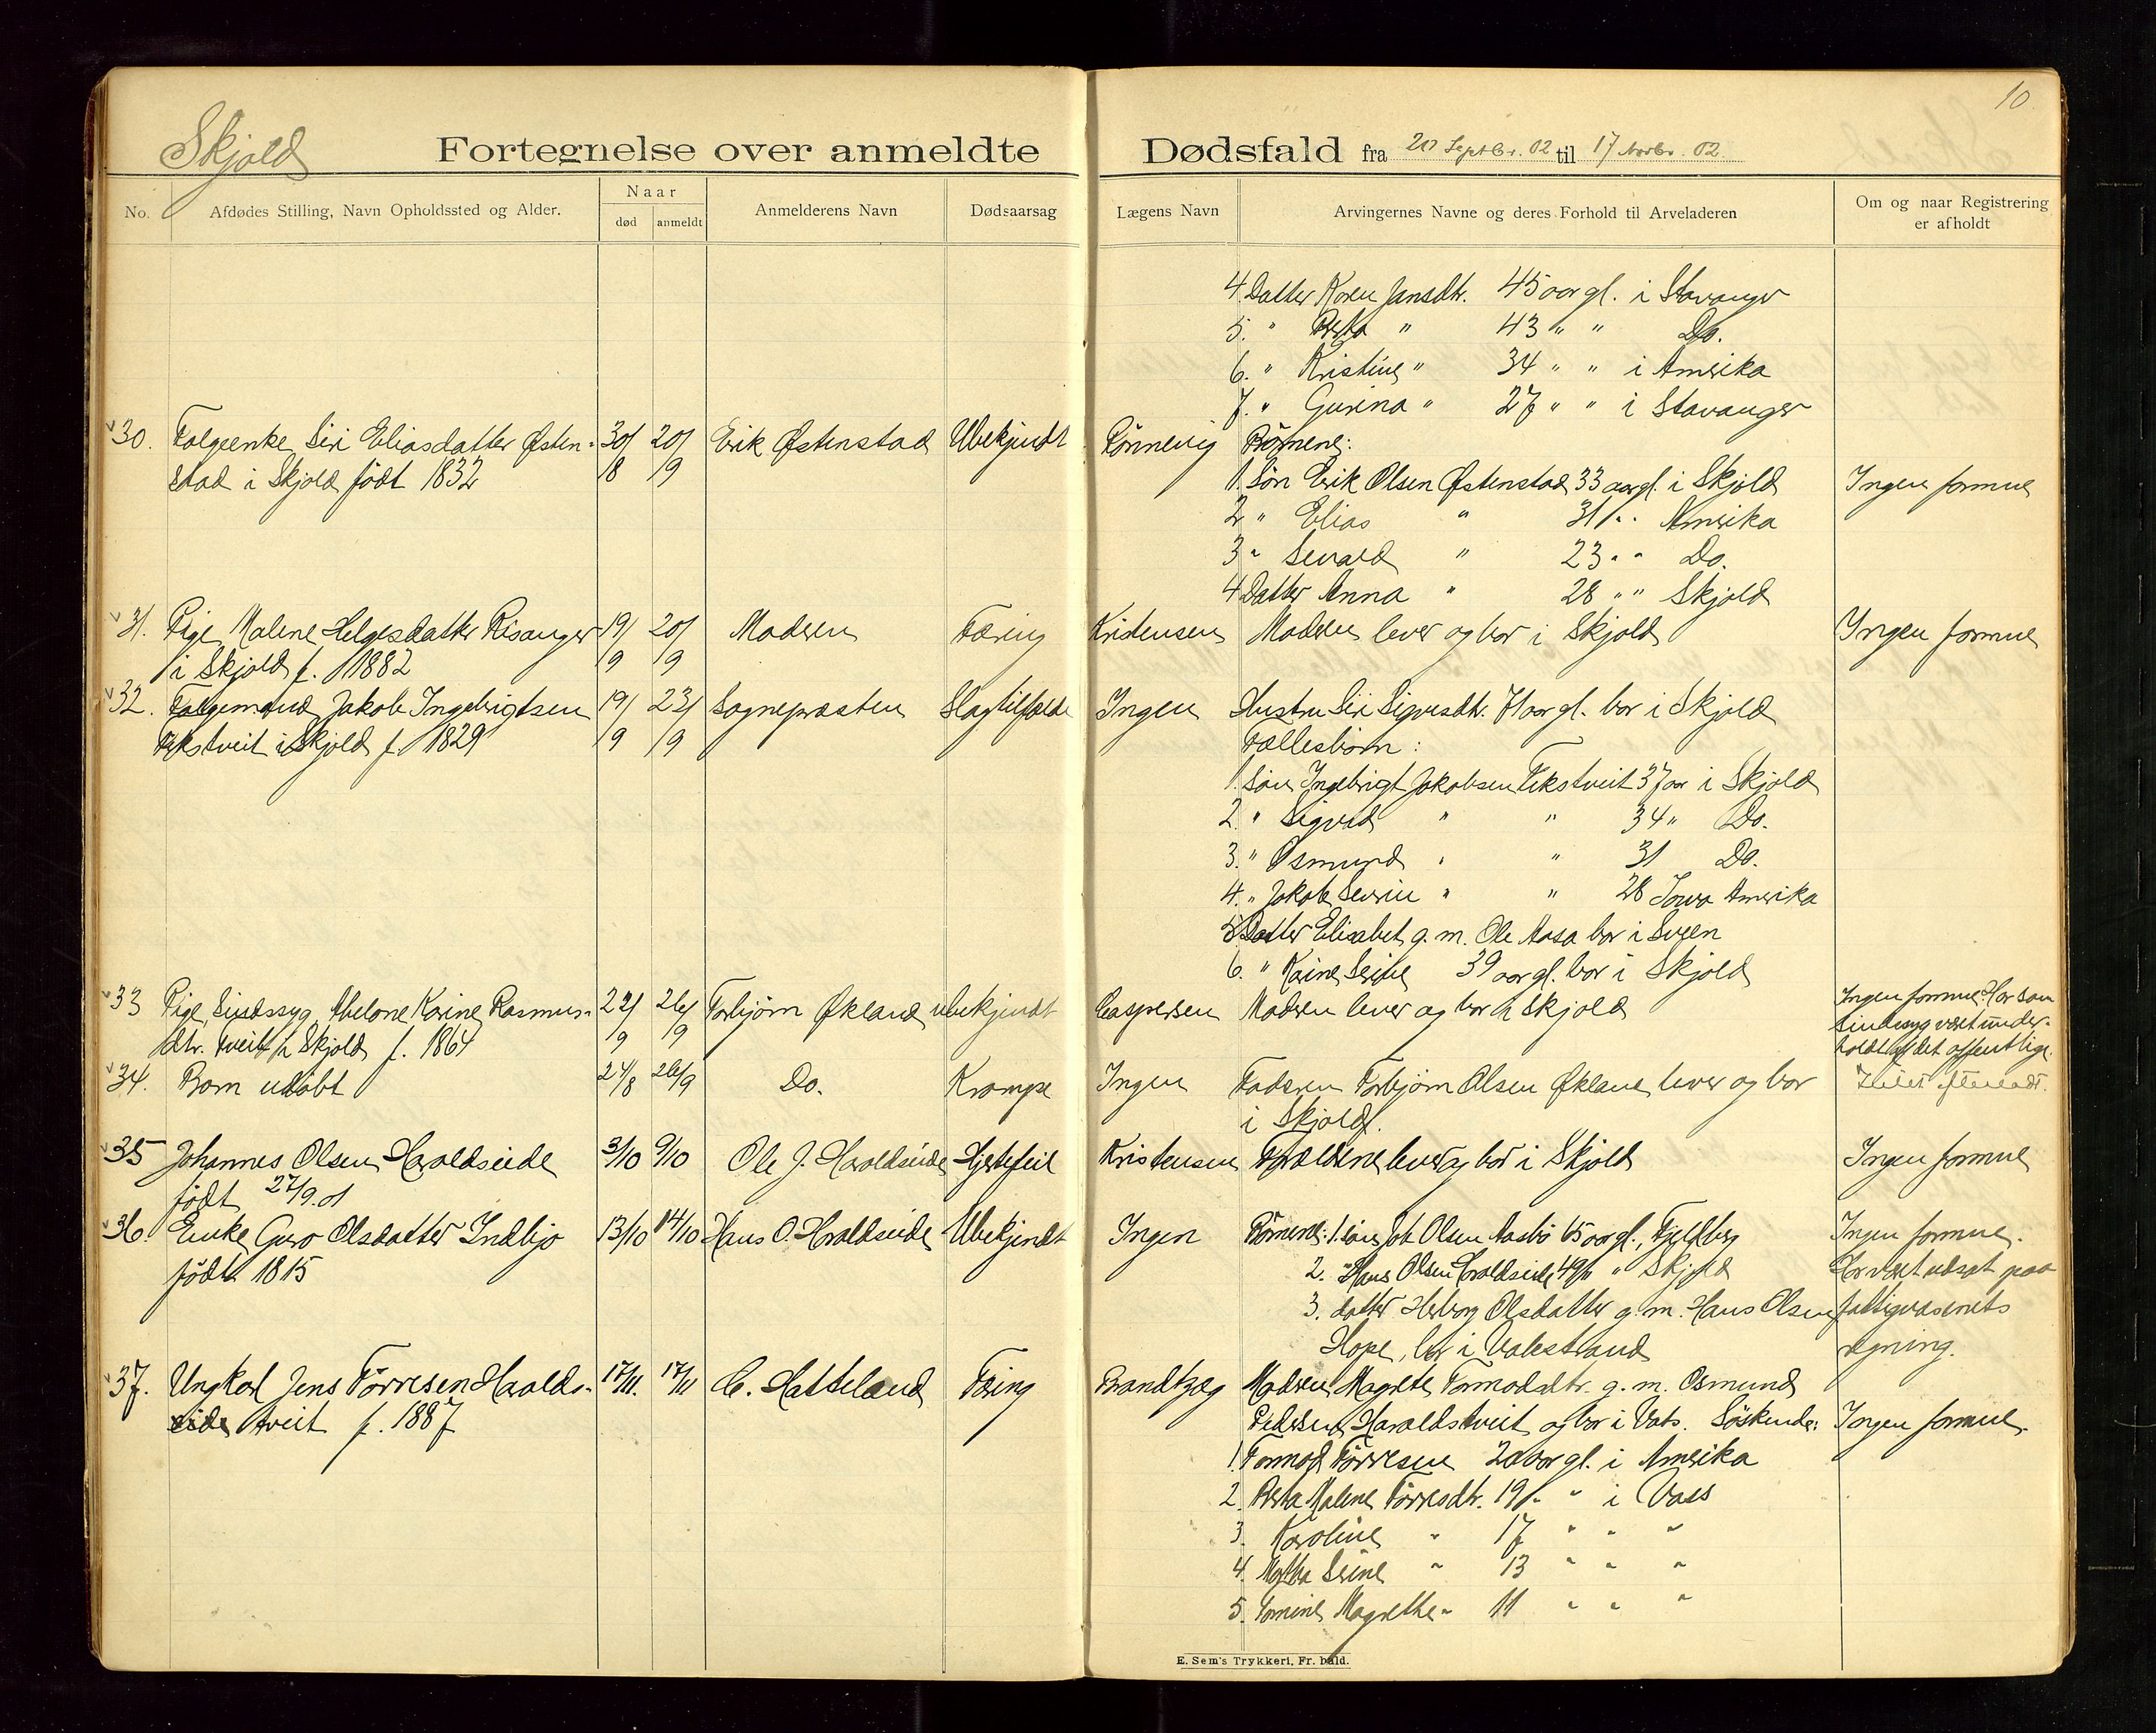 10
Skjold
Fortegnelse over anmeldte Dødsfald fra 20 Septbr. 02 til 17 Novbr. 02.
No. Afdødes Stilling, Navn Opholdssted og Alder. Naar død anmeldt Anmelderens Navn Dødsaarsag Lægens Navn Arvingernes Navne og deres Forhold til Arveladeren Om og naar Registrering er afholdt
4. Datter Karen Jansdtr. 45 aar gl. i Stavanger
5. " Berta " 43 " " Do.
6. " Kristine " 34 " " i Amerika
7. " Gurina " 27 " " i Stavanger
30. Folgeenke Siri Eliasdatter Østen- 30/ 20/ Erik Østenstad Ubekjendt Rönnevig Börnene:
stad i Skjold födt 1832 8 9 1. Sön Erik Olsen Østenstad 33 aar gl. i Skjold Ingen formue
2 " Elias " 31 " " Amerika
3 " Sevald " 23 " " Do.
4 Datter Anna " 28 " " Skjold
31. Pige Malene Helgesdatter Risanger 19/ 20/ Moderen Tæring Kristensen Moderen lever og bor i Skjold Ingen formue
i Skjold f. 1882 9 9
32. Folgemand Jakob Ingebrigtsen 19/ 23/ Sognepræsten Slagtilfælde Ingen Hustru Siri Sigvesdtr. 71 aar gl. bor i Skjold
Tekstveit i Skjold f. 1829 9 9 Fællesbörn:
1. Sön Ingebrigt Jakobsen Tekstveit 37 aar i Skjold
2. " Sigvad " " 34 " Do.
3. " Osmund " " 31 Do.
4. " Jakob Severin " " 28 Iowa Amerika
5 Datter Elisabet g. m. Ole Aasa bor i Sveen
6. " Karine Serine 39 aar gl. bor i Skjold
33 Pige, Sindssyg, Abelone Karine Rasmus- 22/ 26/ Torbjörn Økland ubekjendt Caspersen Moderen lever og bor i Skjold Ingen formue. Har som
dtr. Tveit i Skjold f. 1864 9 9 sindssyg været under-
holdt af det offentlige.
34. Barn udöbt 24/8 26/9 Do. Krampe Ingen Faderen Torbjörn Olsen Økland lever og bor Intet efterladt.
i Skjold.
35 Johannes Olsen Haraldseide 3/10 9/10 Ole J. Haraldseide Hjertefeil Kristensen Forældrene lever og bor i Skjold Ingen formue
födt 27/9.01
36. Enke Guro Olsdatter Indbjo 13/10 14/10 Hans O. Haraldseide Ubekjendt Ingen Börnene: 1. sön Joh. Olsen Aasbö 65 aar gl., Fjeldberg Ingen formue.
födt 1815 2. " Hans Olsen Haraldseide 49 " " Skjold Har været udsat paa
3. datter Herborg Olsdatter g. m. Hans Olsen fattigvæsenets
Hope, bor i Valestrand regning.
37. Ungkarl Jens Törresen Haralds- 17/11. 17/11 C. Hatteland Tæring Brandtzæg Moderen Magrete Tormodsdtr. g. m. Osmund
eide tveit f. 1887 Pedersen Haraldstveit og bor i Vats. Söskende: Ingen formue.
1. Tormod Törresen 20 aar gl. i Amerika
2. Berta Malene Törresdtr. 19 " " i Vass
3. Karoline " 17 " " "
4. Martha Serine " 13 " " "
5. Tomine Magrethe " 11 " " "
E. Sem's Trykkeri, Fr. hald.